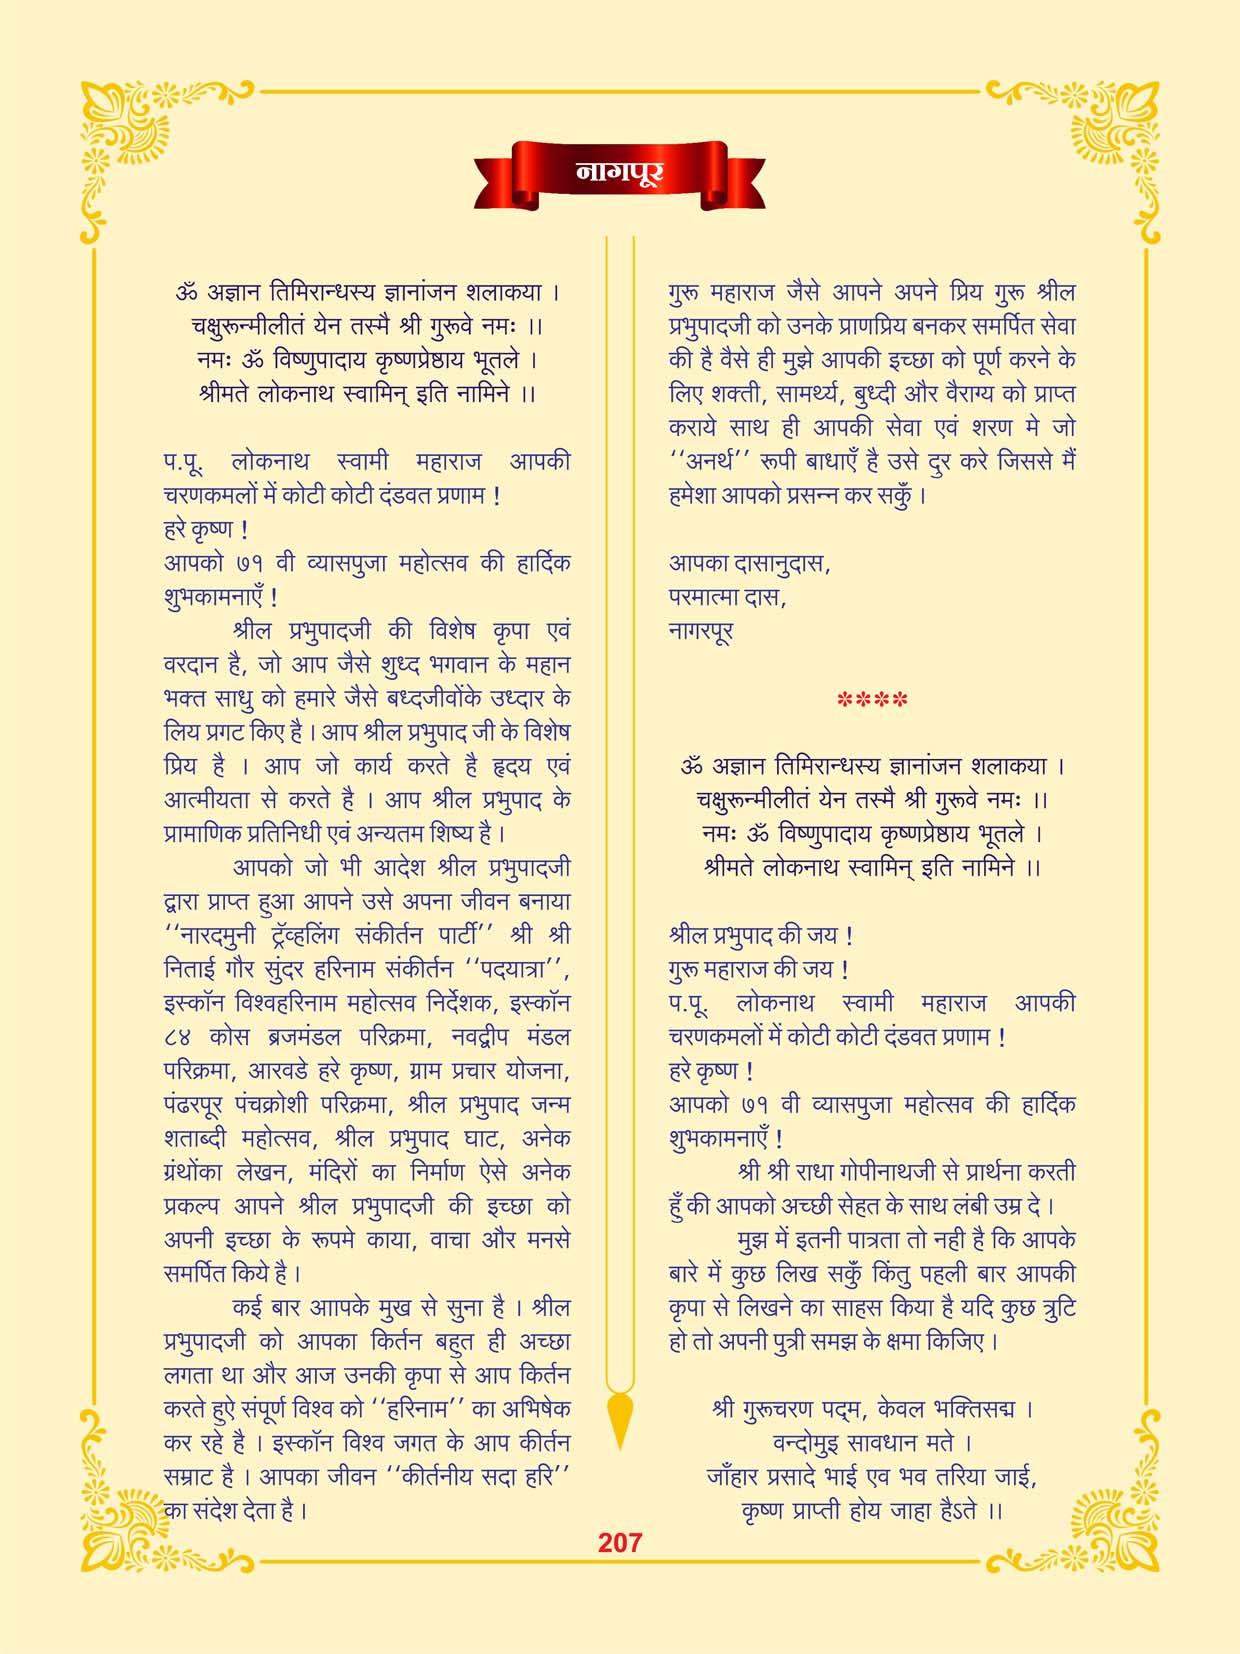 नागपूर
ॐ अज्ञान तिमिरान्धस्य ज्ञानांजन शलाकया ।
चक्षुरून्मीलीतं येन तस्मै श्री गुरूवे नमः ।।
नमः ॐ विष्णुपादाय कृष्णप्रेष्ठाय भूतले ।
श्रीमते लोकनाथ स्वामिन् इति नामिने ।।
प.पू. लोकनाथ स्वामी महाराज आपकी
चरणकमलों में कोटी कोटी दंडवत प्रणाम !
हरे कृष्ण !
आपको ७१ वी व्यासपुजा महोत्सव की हार्दिक
शुभकामनाएँ !
श्रील प्रभुपादजी की विशेष कृपा एवं
वरदान है, जो आप जैसे शुध्द भगवान के महान
भक्त साधु को हमारे जैसे बध्दजीवोंके उध्दार के
लिय प्रगट किए है । आप श्रील प्रभुपाद जी के विशेष
प्रिय है । आप जो कार्य करते है हृदय एवं
आत्मीयता से करते है । आप श्रील प्रभुपाद के
प्रामाणिक प्रतिनिधी एवं अन्यतम शिष्य है ।
आपको जो भी आदेश श्रील प्रभुपादजी
द्वारा प्राप्त हुआ आपने उसे अपना जीवन बनाया
‘‘नारदमुनी ट्रॅव्हलिंग संकीर्तन पार्टी’’ श्री श्री
निताई गौर सुंदर हरिनाम संकीर्तन ‘‘पदयात्रा’’,
इस्कॉन विश्वहरिनाम महोत्सव निर्देशक, इस्कॉन
८४ कोस ब्रजमंडल परिक्रमा, नवद्वीप मंडल
परिक्रमा, आरवडे हरे कृष्ण, ग्राम प्रचार योजना,
पंढरपूर पंचक्रोशी परिक्रमा, श्रील प्रभुपाद जन्म
शताब्दी महोत्सव, श्रील प्रभुपाद घाट, अनेक
ग्रंथोंका लेखन, मंदिरों का निर्माण ऐसे अनेक
प्रकल्प आपने श्रील प्रभुपादजी की इच्छा को
अपनी इच्छा के रूपमे काया, वाचा और मनसे
समर्पित किये है ।
कई बार आापके मुख से सुना है । श्रील
प्रभुपादजी को आपका किर्तन बहुत ही अच्छा
लगता था और आज उनकी कृपा से आप किर्तन
करते हुऐ संपूर्ण विश्व को ‘‘हरिनाम’’ का अभिषेक
कर रहे है । इस्कॉन विश्व जगत के आप कीर्तन
सम्राट है । आपका जीवन ‘‘कीर्तनीय सदा हरि’’
का संदेश देता है ।
गुरू महाराज जैसे आपने अपने प्रिय गुरू श्रील
प्रभुपादजी को उनके प्राणप्रिय बनकर समर्पित सेवा
की है वैसे ही मुझे आपकी इच्छा को पूर्ण करने के
लिए शक्ती, सामर्थ्य, बुध्दी और वैराग्य को प्राप्त
कराये साथ ही आपकी सेवा एवं शरण मे जो
‘‘अनर्थ’’ रूपी बाधाएँ है उसे दुर करे जिससे मैं
हमेशा आपको प्रसन्न कर सकुँ ।
आपका दासानुदास,
परमात्मा दास,
नागरपूर
****
ॐ अज्ञान तिमिरान्धस्य ज्ञानांजन शलाकया ।
चक्षुरून्मीलीतं येन तस्मै श्री गुरूवे नमः ।।
नमः ॐ विष्णुपादाय कृष्णप्रेष्ठाय भूतले ।
श्रीमते लोकनाथ स्वामिन् इति नामिने ।।
श्रील प्रभुपाद की जय !
गुरू महाराज की जय !
प.पू. लोकनाथ स्वामी महाराज आपकी
चरणकमलों में कोटी कोटी दंडवत प्रणाम !
हरे कृष्ण !
आपको ७१ वी व्यासपुजा महोत्सव की हार्दिक
शुभकामनाएँ !
श्री श्री राधा गोपीनाथजी से प्रार्थना करती
हुँ की आपको अच्छी सेहत के साथ लंबी उम्र दे ।
मुझ में इतनी पात्रता तो नही है कि आपके
बारे में कुछ लिख सकुँ किंतु पहली बार आपकी
कृपा से लिखने का साहस किया है यदि कुछ त्रुटि
हो तो अपनी पुत्री समझ के क्षमा किजिए ।
श्री गुरूचरण पद्‌म, केवल भक्तिसद्म ।
वन्दोमुइ सावधान मते ।
जाँहार प्रसादे भाई एव भव तरिया जाई,
कृष्ण प्राप्ती होय जाहा हैऽते ।।
207